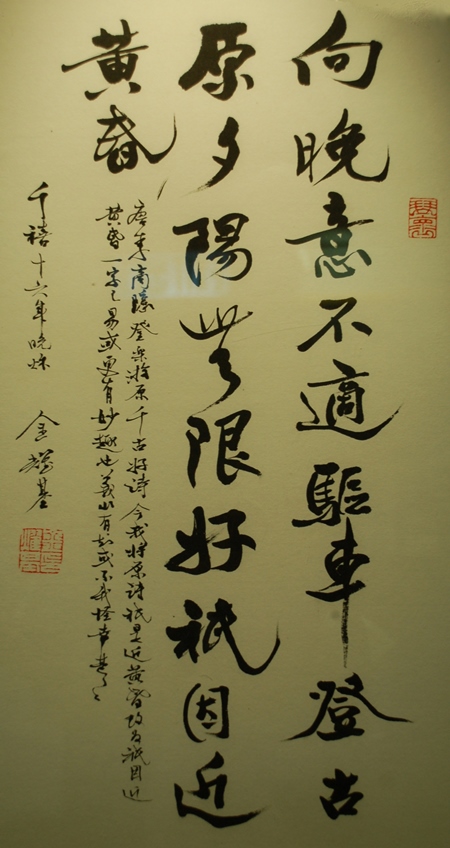 向晚意不適驅車登古
原夕陽無限好祇因近
黃昏
唐李商隱登樂游原千古好詩今我將原詩祇是近黃昏改為祇因近
黃昏一字之易或更有妙趣也義山有知或不我怪幸甚〻
千禧十六年晚秌
金耀基